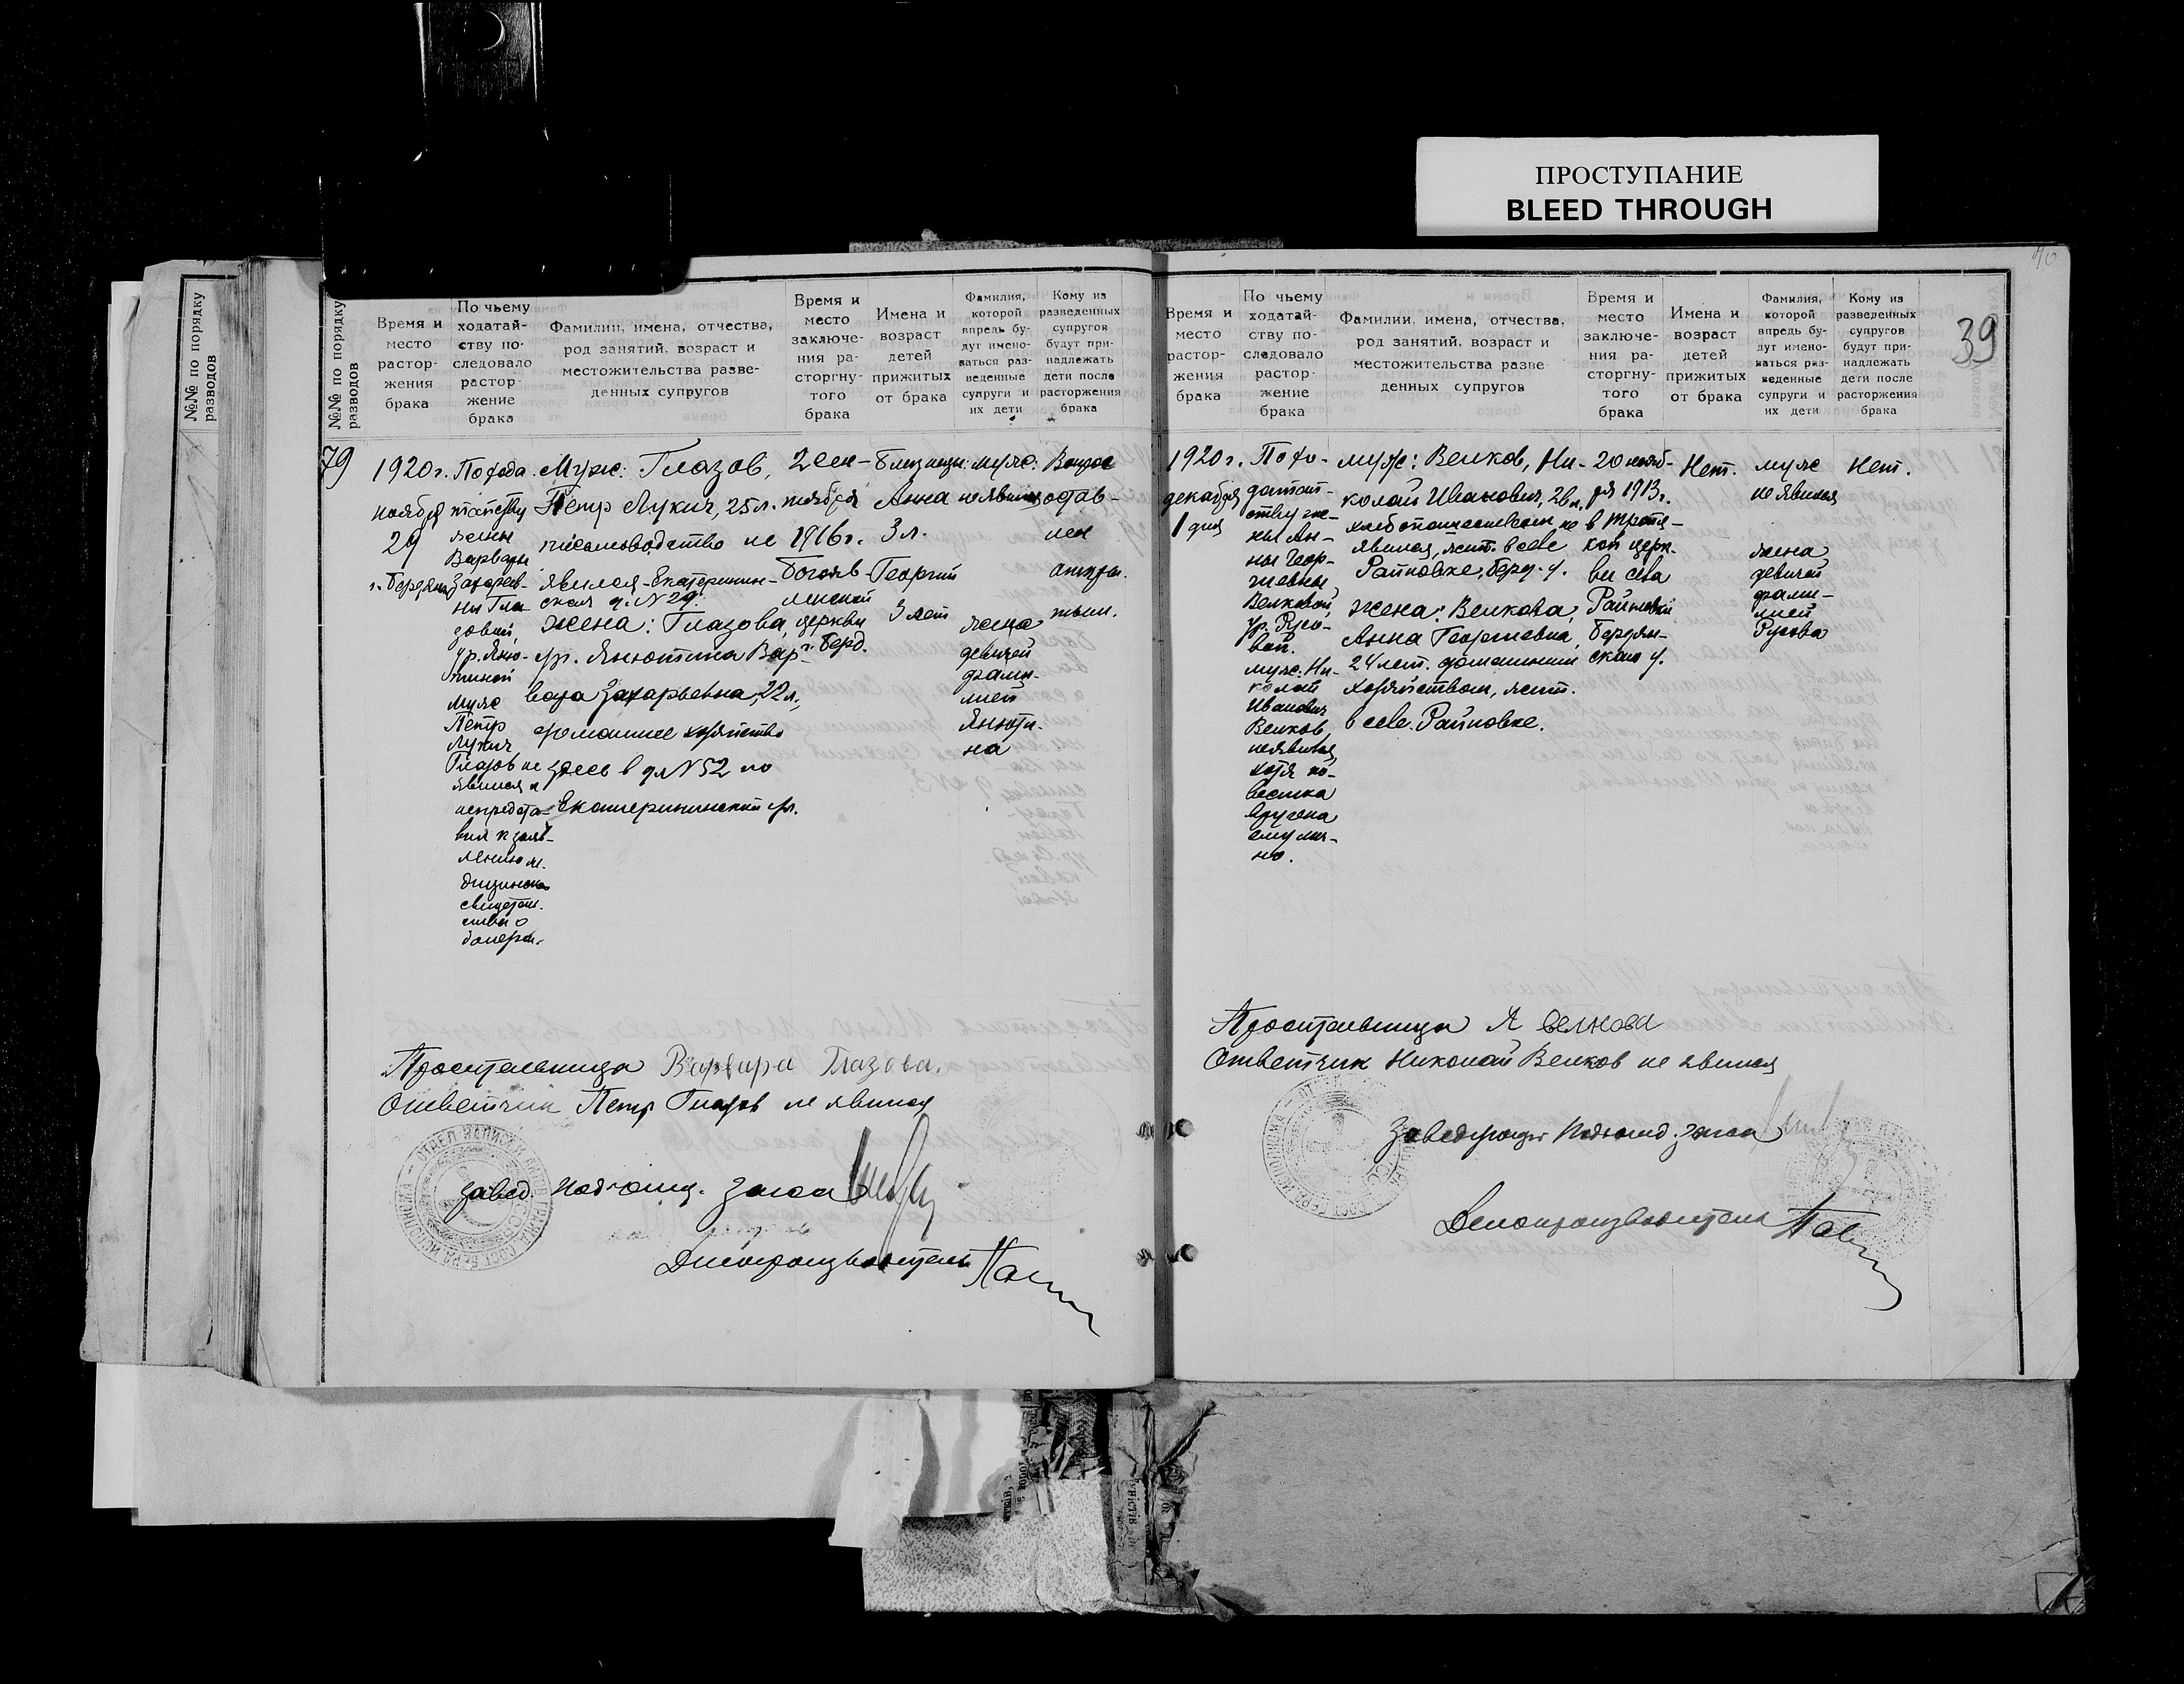 ПРОСТУПАНИЕ
BLEED THROUGH
№№ по порядку
разводов
№№ по порядку
разводов
Время и
место
растор-
жения
брака
По чьему
ходатай-
ству по-
следовало
растор-
жение
брака
Фамилии, имена, отчества,
род занятий, возраст и
местожительства разве-
денных супругов
Время и
место
заключе-
ния ра-
сторгну-
того
брака
Имена и
возраст
детей
прижитых
от брака
Фамилия,
которой
впредь бу-
дут имено-
ваться раз-
веденные
супруги и
их дети
Кому из
разведенных
супругов
будут при-
надлежать
дети после
расторжения
брака
79
1920г.
ноября
29
г. Бердянск
По хода-
тайству
жены
Варвары
Захарьев-
ны Гла-
зовой,
ур. Яню-
тиной
муж
Петр
Лукич
Глазов не
явился и
непредста-
вил к заяв-
лению
свидетель-
ства о
Муж: Глазов,
Петр Лукич, 25 л.
письмоводство не
явился - Екатеринин-
ская д. N 29.
жена: Глазова,
ур. Янютина Вар-
вара Захарьевна, 22 л.,
домашнее хозяйство
здесь в д. N 52 по
Екатерининской ул.
2 сен-
тября
1916 г.
Богояв-
ленской
церкви
г. Берд.
Близнецы:
Анна
3 л.
Георгий
3 лет
муж:
не явился
жена
девичей
фами-
лией
Янюти-
на
Вопрос
остав-
лен
откры-
тым.
Просительница Варвара Глазова.
Ответчик Петр Глазов не явился
Завед. Подъотд. Загса
Делопроизводитель
39
Время и
место
растор-
жения
брака
По чьему
ходатай-
ству по-
следовало
растор-
жение
брака
Фамилии, имена, отчества,
род занятий, возраст и
местожительства разве-
денных супругов
Время и
место
заключе-
ния ра-
сторгну-
того
брака
Имена и
возраст
детей
прижитых
от брака
Фамилия,
которой
впредь бу-
дут имено-
ваться раз-
веденные
супруги и
их дети
Кому из
разведенных
супругов
будут при-
надлежать
дети после
расторжения
брака
1920 г.
декабря
1 дня
По хо-
датай-
ству же-
ны Ан-
ны Геор-
гиевны
Велковой,
ур. Русо-
вой.
муж: Ни-
колай
Иванович
Велков,
не явился
хотя по-
вестка
вручена
ему лич-
но.
муж: Велков, Ни-
колай Иванович, 26 л.,
хлебопашеством, не
явился, жит. в селе
Райновке, Берд. у.
жена: Велкова,
Анна Георгиевна,
24 лет. домашним
хозяйством, жит.
в селе Райновке.
20 нояб-
ря 1913 г.
в Троиц-
кой церк-
ви села
Райновки
Бердян-
ского у.
Нет.
муж
не явился
жена
девичей
фами-
лией
Русова
Нет.
Просительница А Велкова
Ответчик Николай Велков не явился
Заведующий Подъотд. Загса
Делопроизводитель